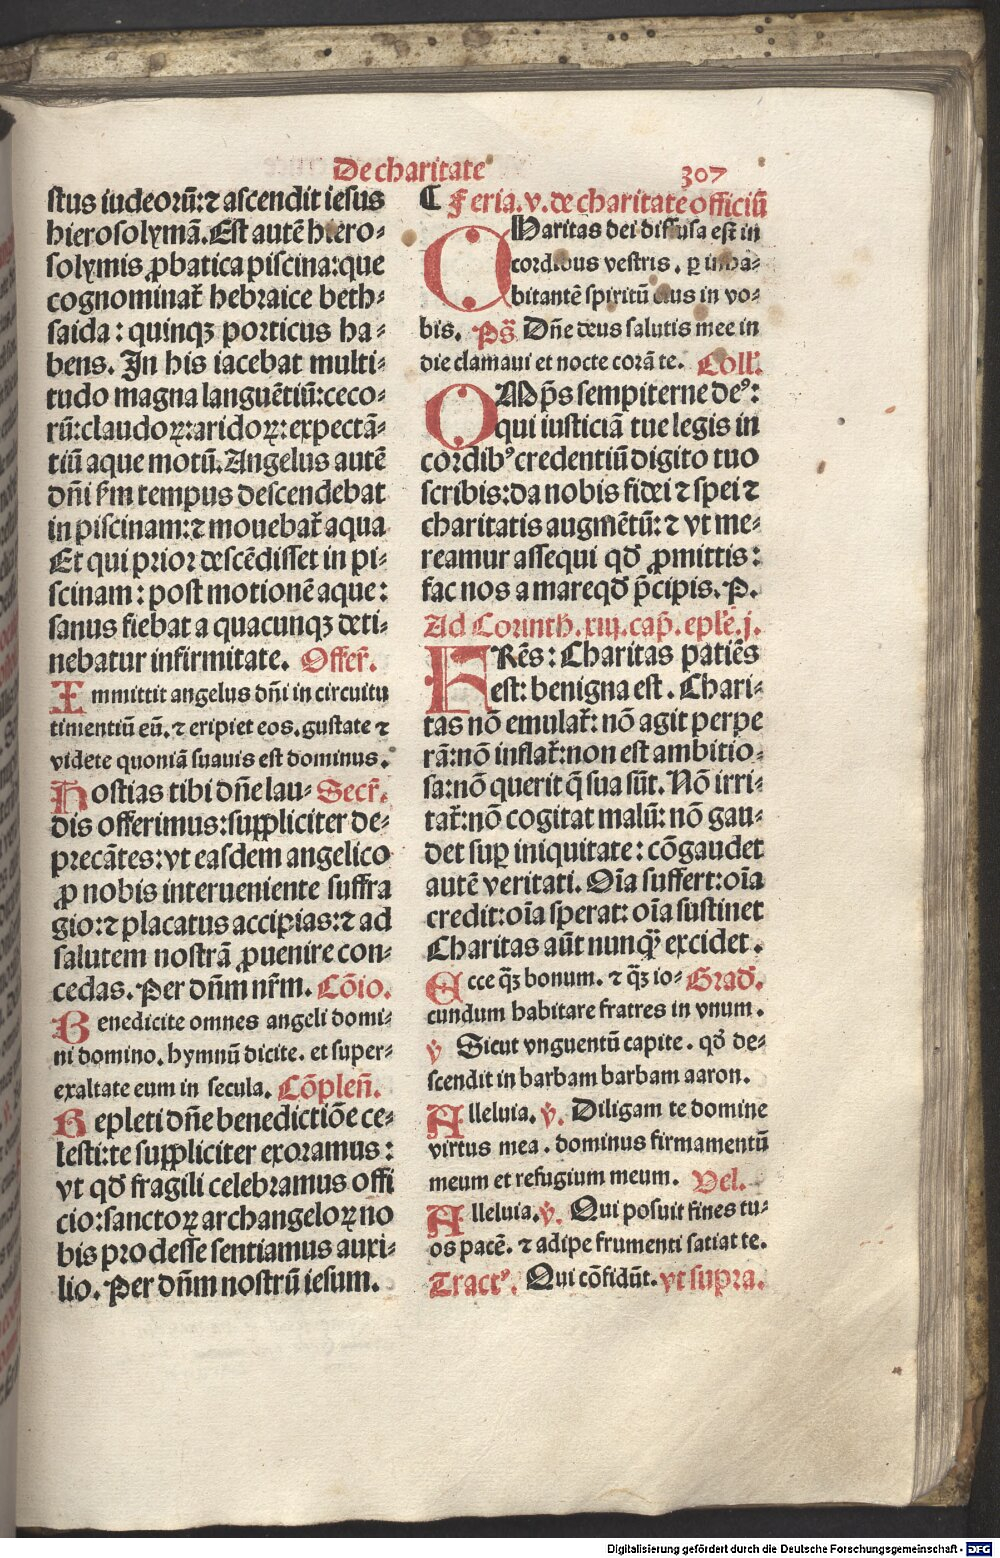 De charitate 307
stus iudeorū: ⁊ ascendit iesus
hierosolymā. Est autē hiero⸗
solymis ꝓbatica piscina: que
cognominat᷑ hebraice beth⸗
saida: quinqꝫ porticus ha⸗
bens. In his iacebat multi⸗
tudo magna languētiū: ceco⸗
rū: claudoꝝ: aridoꝝ: expectā⸗
tiū aque motū. Angelus autē
dn̄i ẜm tempus descendebat
in piscinam: ⁊ mouebat᷑ aqua
Et qui prior descēdisset in pi⸗
scinam: post motionē aque:
sanus fiebat a quacunqꝫ deti⸗
nebatur infirmitate. Offer̄.
Immittit angelus dn̄i in circuitu
timentiū eū. ⁊ eripiet eos. gustate ⁊
videte quoniā suauis est dominus.
Hostias tibi dn̄e lau⸗ Secr̄.
dis offerimus: suppliciter de⸗
precātes: vt easdem angelico
ꝓ nobis interueniente suffra
gio: ⁊ placatus accipias: ⁊ ad
salutem nostrā ꝓuenire con⸗
cedas. Per dn̄m nr̄m. Cōio.
Benedicite omnes angeli domi⸗
ni domino. hymnū dicite. et super⸗
exaltate eum in secula. Cōpleñ.
Repleti dn̄e benedictiōe ce⸗
lesti: te suppliciter exoramus:
vt qd̄ fragili celebramus offi
cio: sanctoꝝ archangeloꝝ no
bis prodesse sentiamus auxi⸗
lio. Per dn̄m nostrū iesum.
¶ Feria. v. de charitate officiū
CHaritas dei diffusa est in
cordibus vestris. ꝑ inha⸗
bitantē spiritū eius in vo⸗
bis. Ps̄ Dn̄e deus salutis mee in
die clamaui et nocte corā te. Coll̄.
OMp̄s sempiterne deꝰ:
qui iusticiā tue legis in
cordibꝰ credentiū digito tuo
scribis: da nobis fidei ⁊ spei ⁊
charitatis augmētū: ⁊ vt me⸗
reamur assequi qd̄ ꝓmittis:
fac nos amare qd̄ p̄cipis. P.
Ad Corinth. xiij. cap̄. epl̄e. j.
FRēs: Charitas patiēs
est: benigna est. Chari⸗
tas nō emulat᷑: nō agit perpe
rā: nō inflat᷑: non est ambitio⸗
sa: nō querit q̄ sua sūt. Nō irri⸗
tat᷑: nō cogitat malū: nō gau⸗
det suꝑ iniquitate: cōgaudet
autē veritati. Oīa suffert: oīa
credit: oīa sperat: oīa sustinet
Charitas aūt nunqͣꝫ excidet.
Ecce qͣꝫ bonum. ⁊ qͣꝫ io⸗ Grad̄.
cundum habitare fratres in vnum.
℣ Sicut vnguentū capite. qd̄ de⸗
scendit in barbam barbam aaron.
Alleluia. ℣. Diligam te domine
virtus mea. dominus firmamentū
meum et refugium meum. Vel.
Alleluia. ℣. Qui posuit fines tu⸗
os pacē. ⁊ adipe frumenti satiat te.
Tractꝰ. Qui cōfidūt. vt supra.
Digitalisierung gefördert durch die Deutsche Forschungsgemeinschaft - DFG